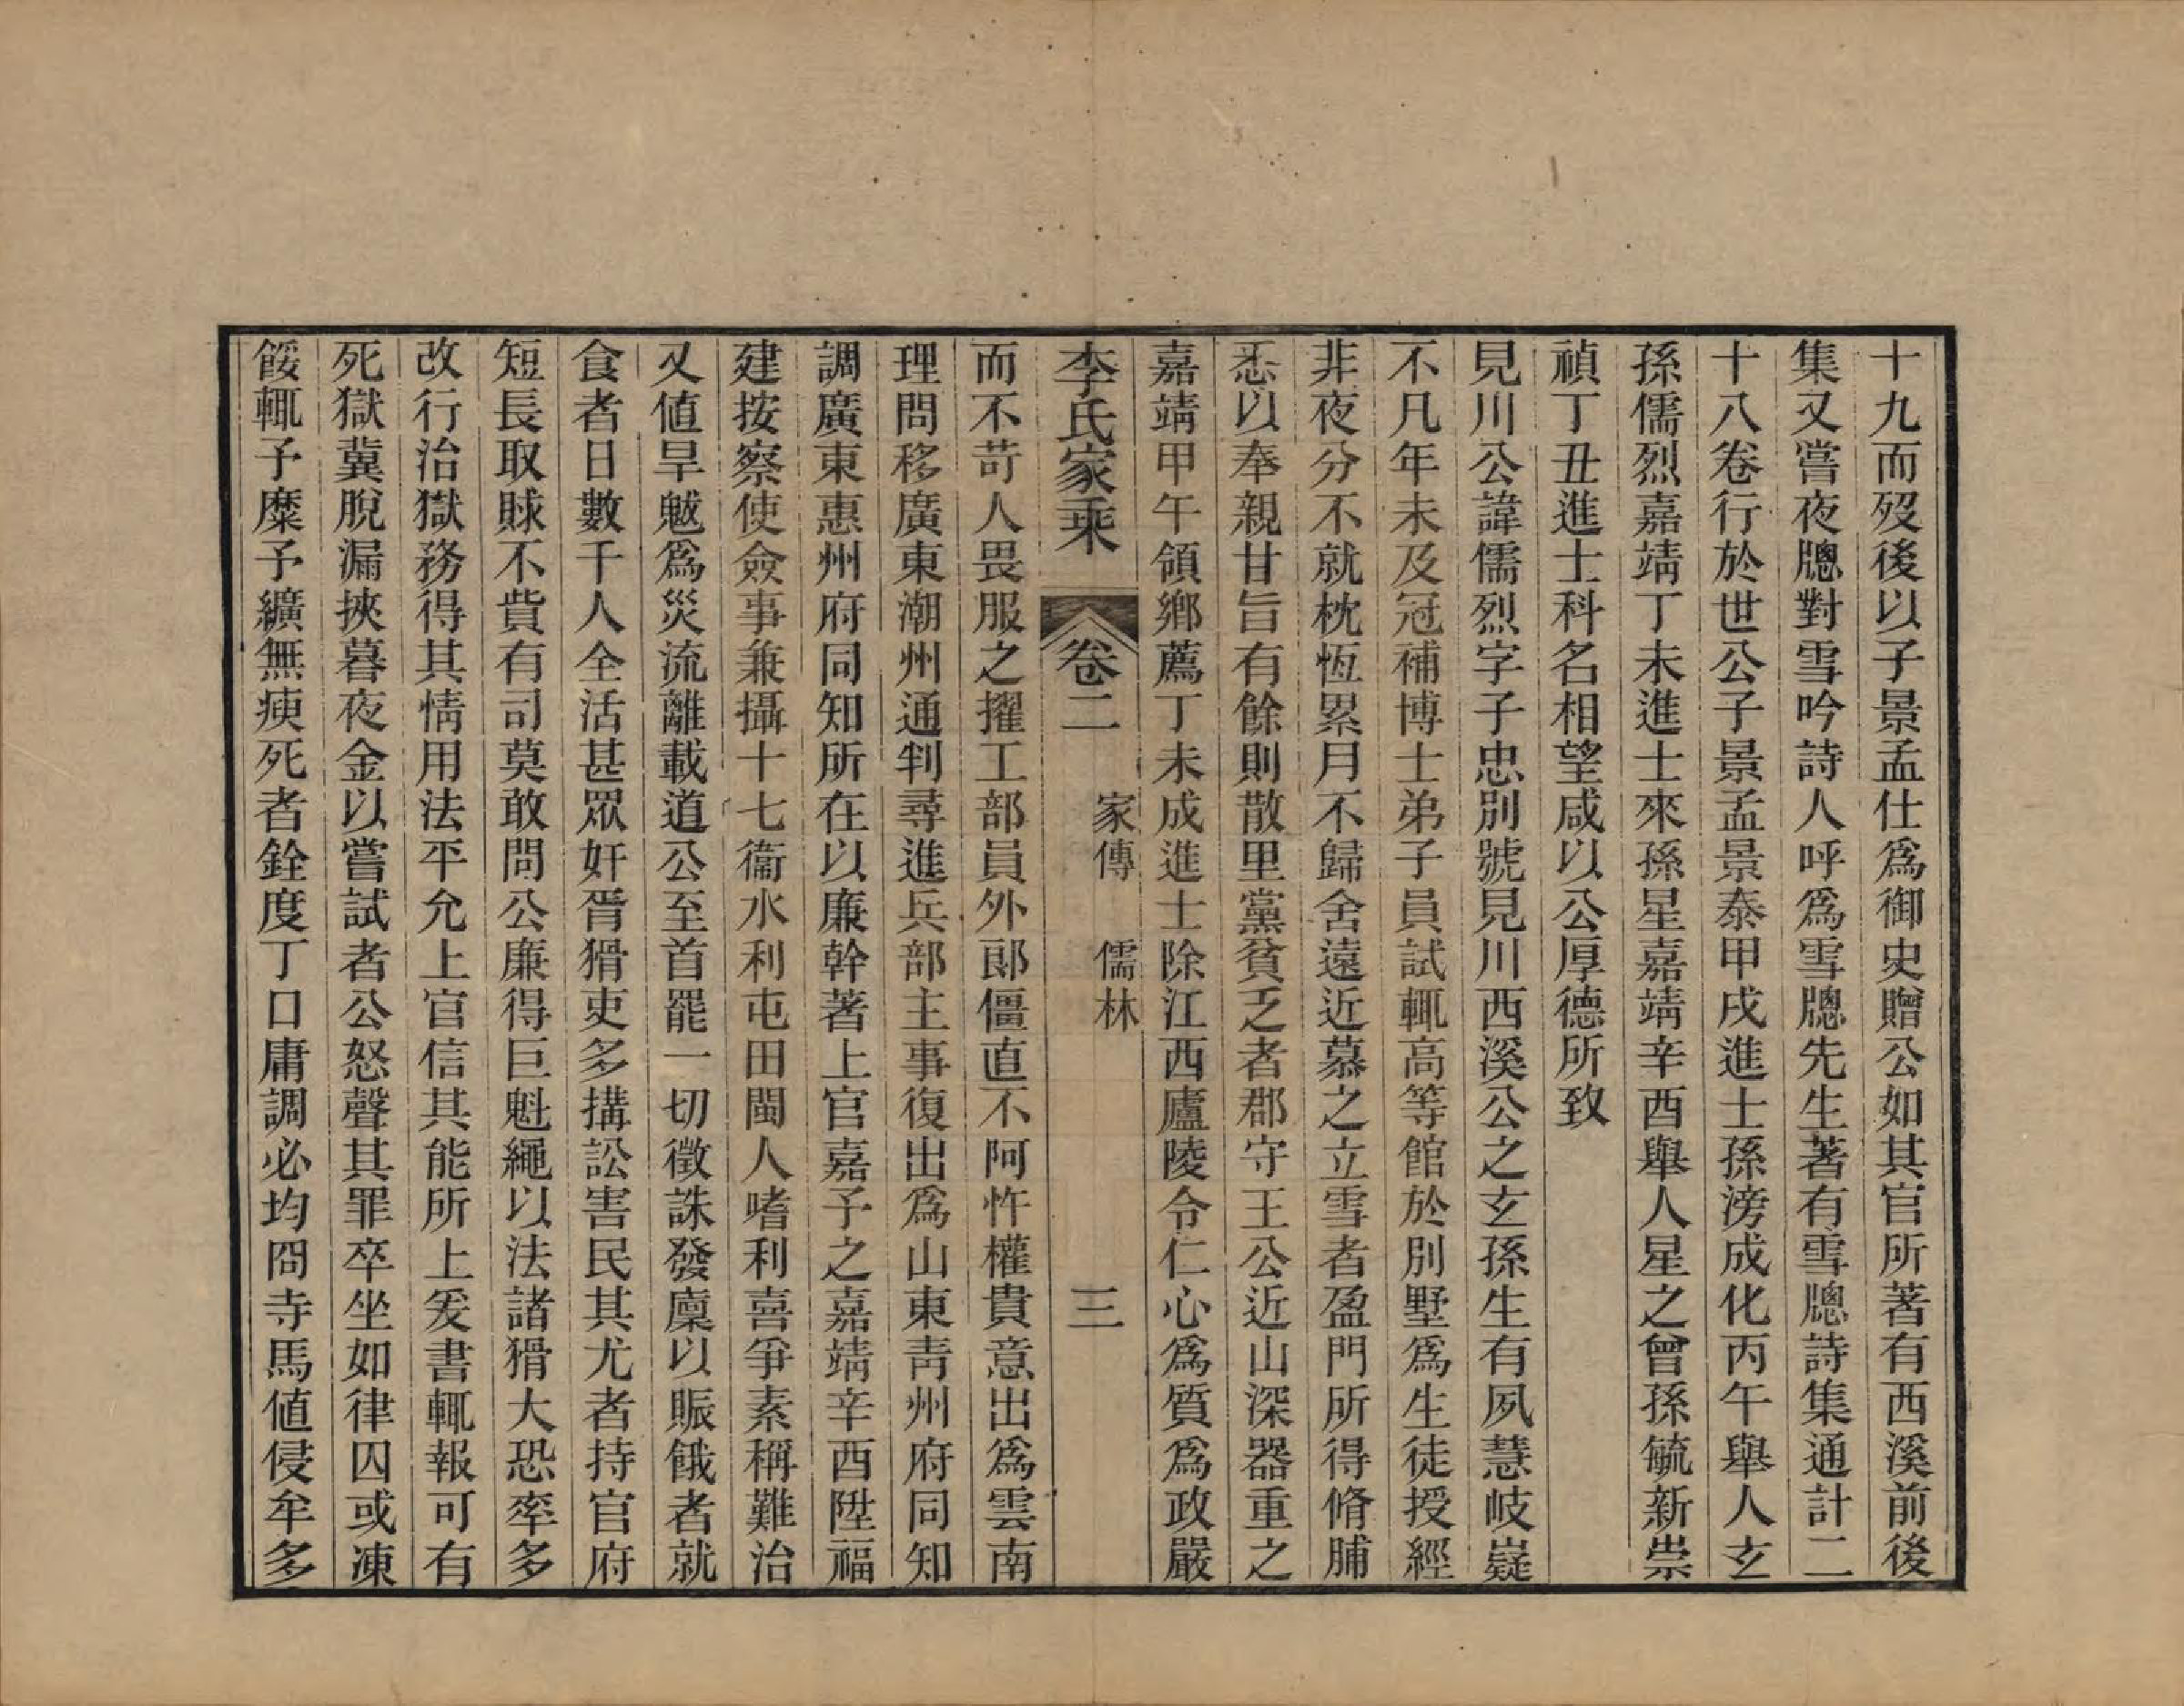 十九而歿後以子景孟仕爲御史贈公如其官所著有西溪前後
集又嘗夜牕對雪吟詩人呼爲雪牕先生著有雪牕詩集通計二
十八卷行於世公子景孟景泰甲戌進士孫滂成化丙午舉人玄
孫儒烈嘉靖丁未進士來孫星嘉靖辛酉舉人星之曾孫毓新崇
禎丁丑進士科名相望咸以公厚德所致
見川公諱儒烈字子忠別號見川西溪公之玄孫生有夙慧岐嶷
不凡年未及冠補博士弟子員試輒高等館於別墅爲生徒授經
非夜分不就枕恆累月不歸舍遠近慕之立雪者盈門所得脩脯
悉以奉親甘旨有餘則散里黨貧乏者郡守王公近山深器重之
嘉靖甲午領鄉薦丁未成進士除江西廬陵令仁心爲質爲政嚴
李氏家乘 卷二 家傳 儒林 三
而不苛人畏服之擢工部員外郎僵直不阿忤權貴意出爲雲南
理問移廣東潮州通判尋進兵部主事復出爲山東靑州府同知
調廣東惠州府同知所在以廉幹著上官嘉予之嘉靖辛酉陞福
建按察使僉事兼攝十七衞水利屯田閩人嗜利喜爭素稱難治
又値旱魃爲災流離載道公至首罷一切徵誅發廩以賑餓者就
食者日數千人全活甚眾奸胥猾吏多搆訟害民其尤者持官府
短長取賕不貲有司莫敢問公廉得巨魁繩以法諸猾大恐率多
改行治獄務得其情用法平允上官信其能所上爰書輒報可有
死獄冀脫漏挾暮夜金以嘗試者公怒聲其罪卒坐如律囚或凍
餒輒予糜予纊無瘐死者銓度丁口庸調必均冏寺馬値侵牟多